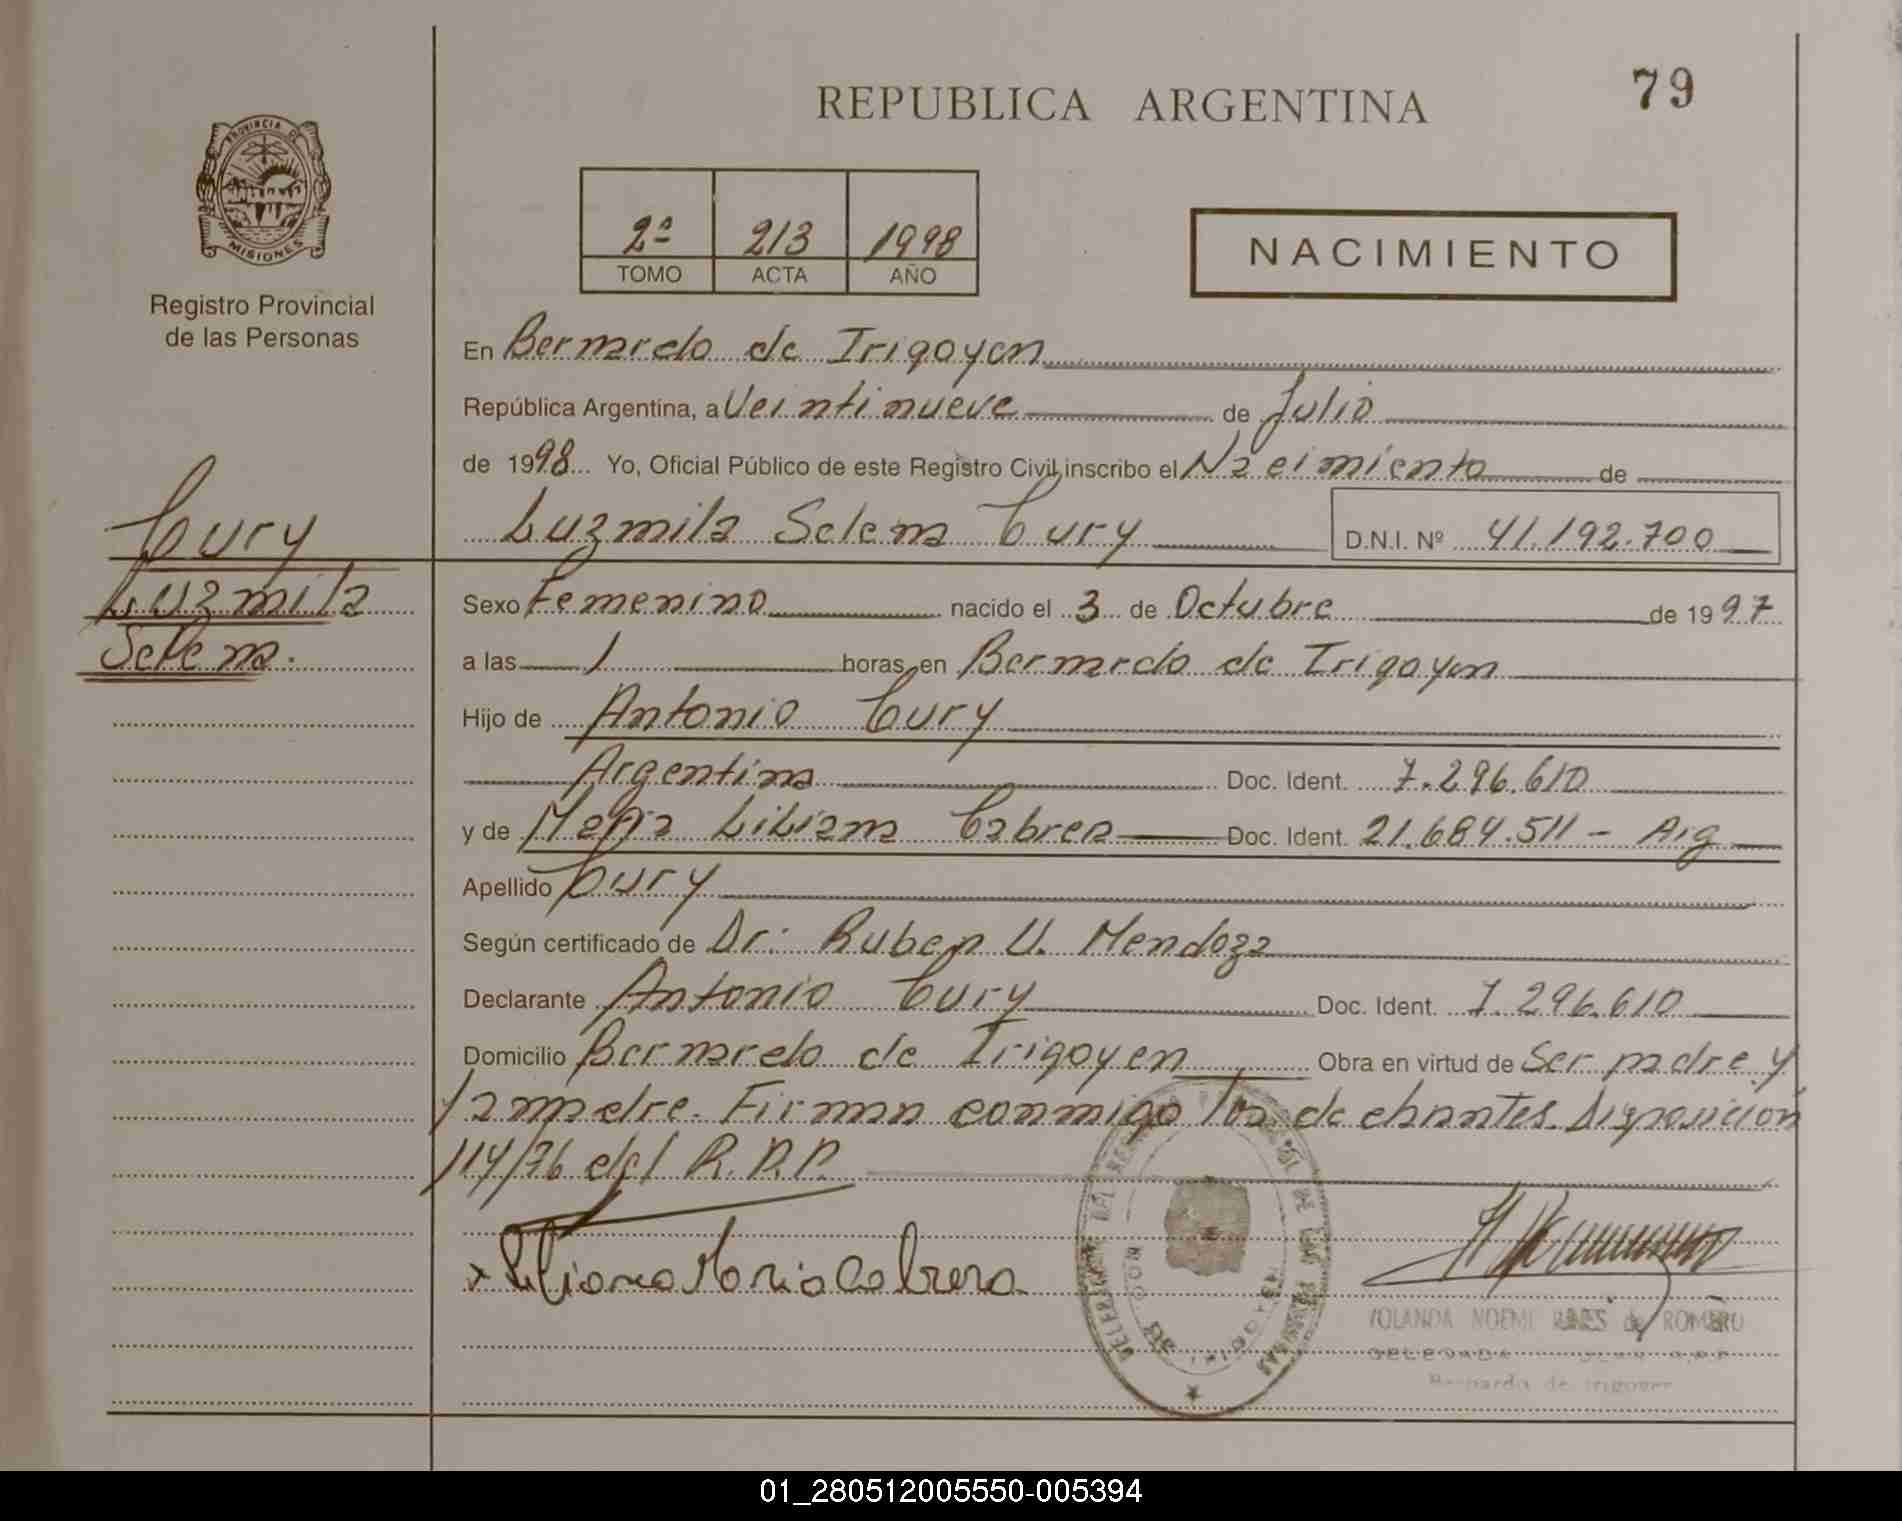 79
REPUBLICA ARGENTINA
PROVINCIA DE
MISIONES
Registro Provincial
de las Personas
2º 213 1998
TOMO ACTA AÑO
NACIMIENTO
En Bernardo de Irigoyen
República Argentina, a Veintinueve de Julio
de 1998 Yo, Oficial Público de este Registro Civil inscribo el Nacimiento de
Luzmila Selena Cury D.N.I. Nº 41.192.700
Cury
Luzmila
Selena.
Sexo Femenino nacido el 3 de Octubre de 1997
a las 1 horas en Bernardo de Irigoyen
Hijo de Antonio Cury
Argentina Doc. Ident. 7.296.610
y de María Liliana Cabrera Doc. Ident. 21.684.511 - Arg
Apellido Cury
Según certificado de Dr. Ruben U. Mendoza
Declarante Antonio Cury Doc. Ident. 7.296.610
Domicilio Bernardo de Irigoyen Obra en virtud de Ser padre y
la madre. Firman conmigo los declarantes. Disposición
114/76 del R.P.P.
x Liliana Maria Cabrera
YOLANDA NOEMI de ROMERO
DELEGADA R.P.P.
Bernardo de Irigoyen
01_280512005550-005394